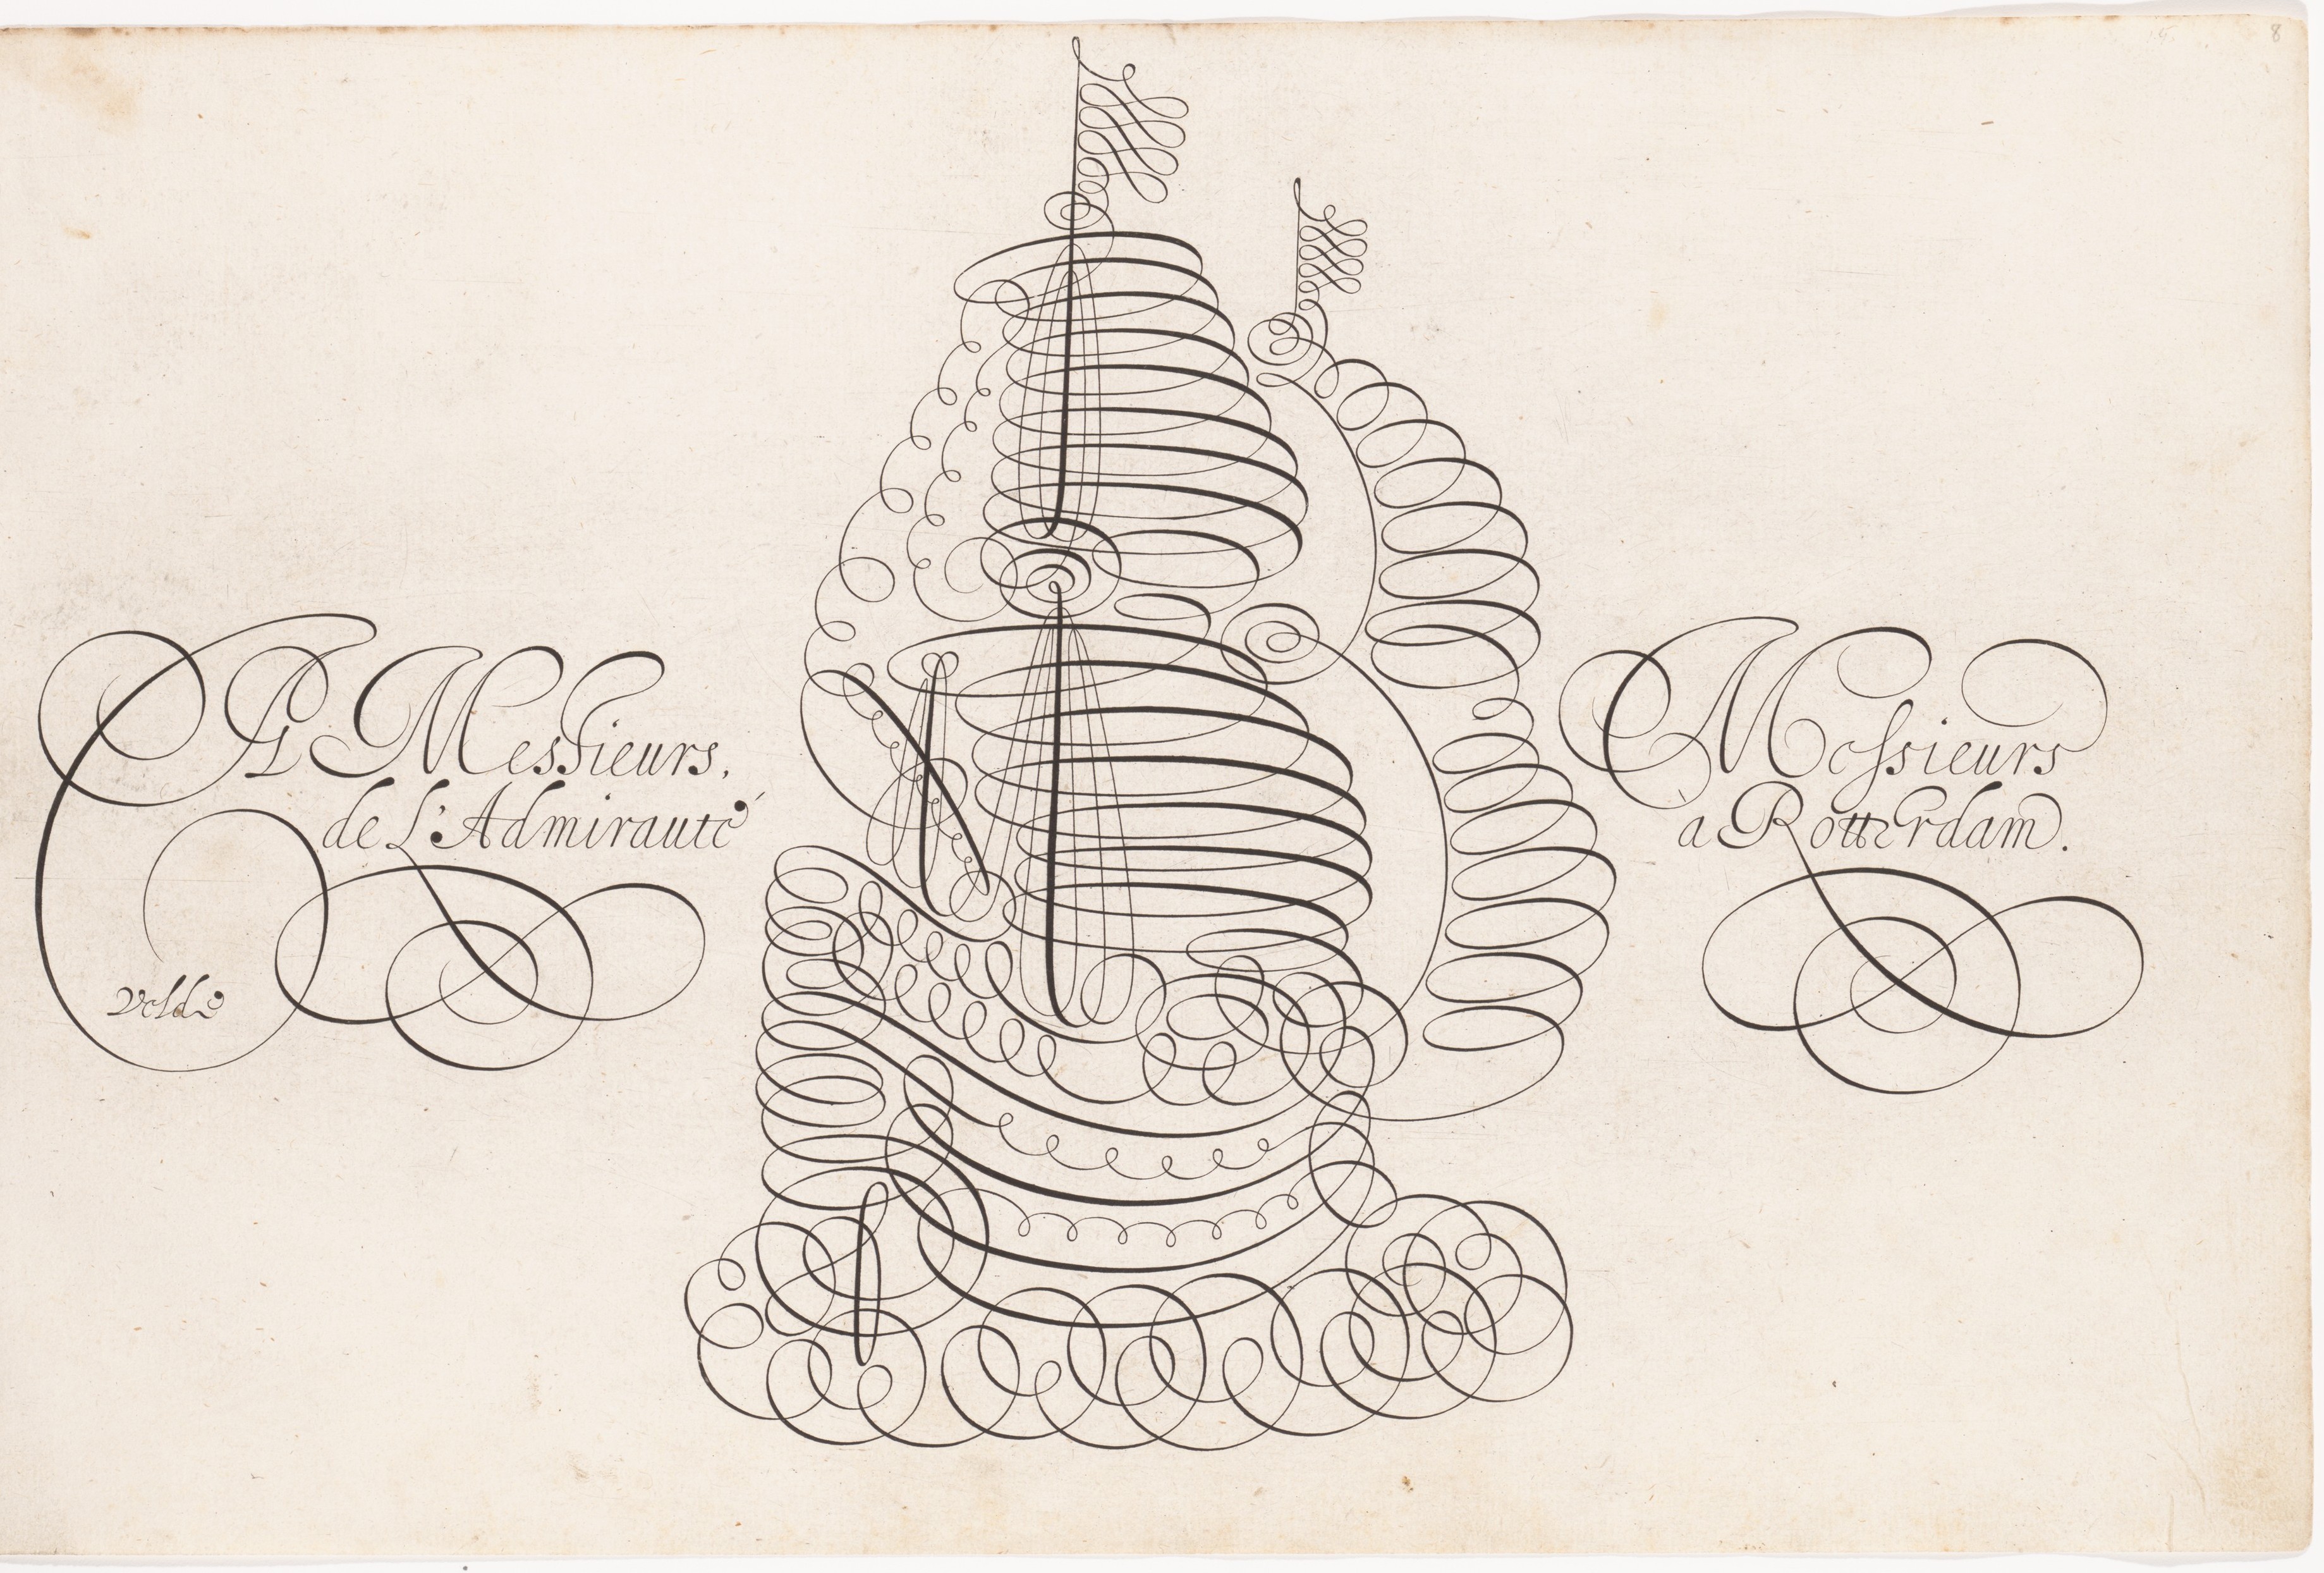 A Messieurs,
de L'Admirauté
velde
Messieurs
a Rotterdam.
8